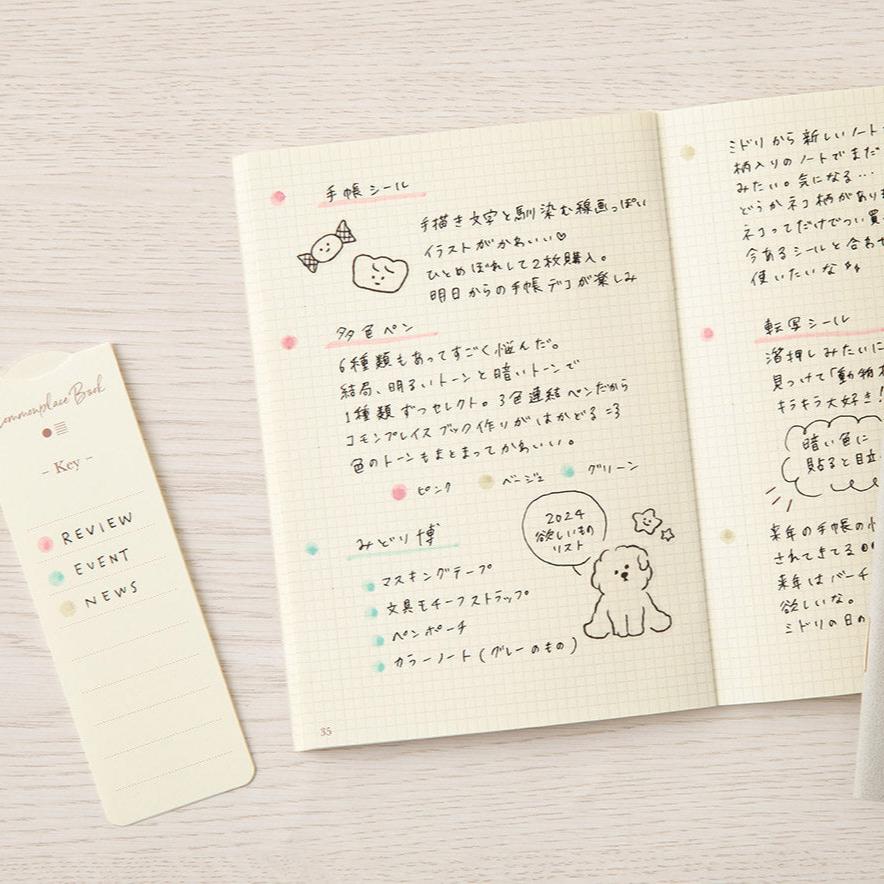 Commonplace Book
– Key –
REVIEW
EVENT
NEWS
手帳シール
手描き文字と馴染む線画っぽい
イラストがかわいい♡
ひとめぼれして2枚購入。
明日からの手帳デコが楽しみ
多色ペン
6種類もあってすごく悩んだ。
結局、明るいトーンと暗いトーンで
1種類ずつセレクト。3色連結ペンだから
コモンプレイスブック作りがはかどる=3
色のトーンもまとまってかわいい。
ピンク ベージュ グリーン
みどり博
マスキングテープ
文具モチーフストラップ
ペンポーチ
カラーノート(グレーのもの)
2024
欲しいもの
リスト
35
ミドリから新しいノート
柄入りのノートでまだ
みたい。気になる…
どうかネコ柄があり
ネコってだけでつい買
今あるシールと合わせ
使いたいな
転写シール
箔押しみたいに
見っけて「動物
キラキラ大好き!
暗い色に
貼ると目立
来年の手帳の
されてきてる
来年はバーチ
欲しいな。
ミドリの日の